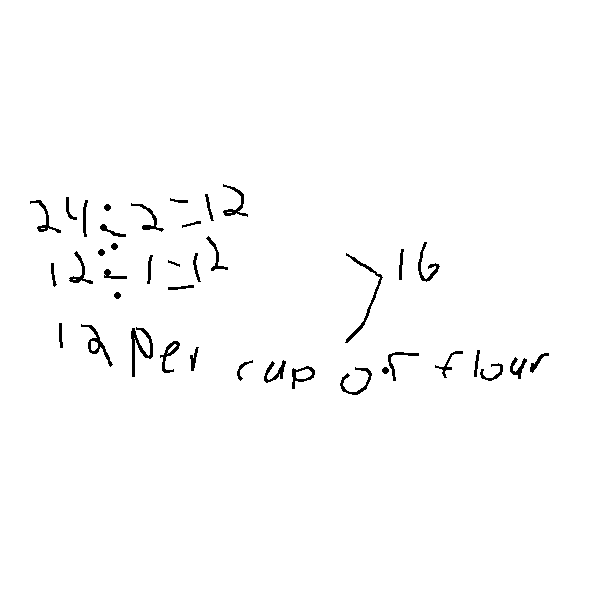 24÷2=12
12÷1=12
>16
12 per cup of flour